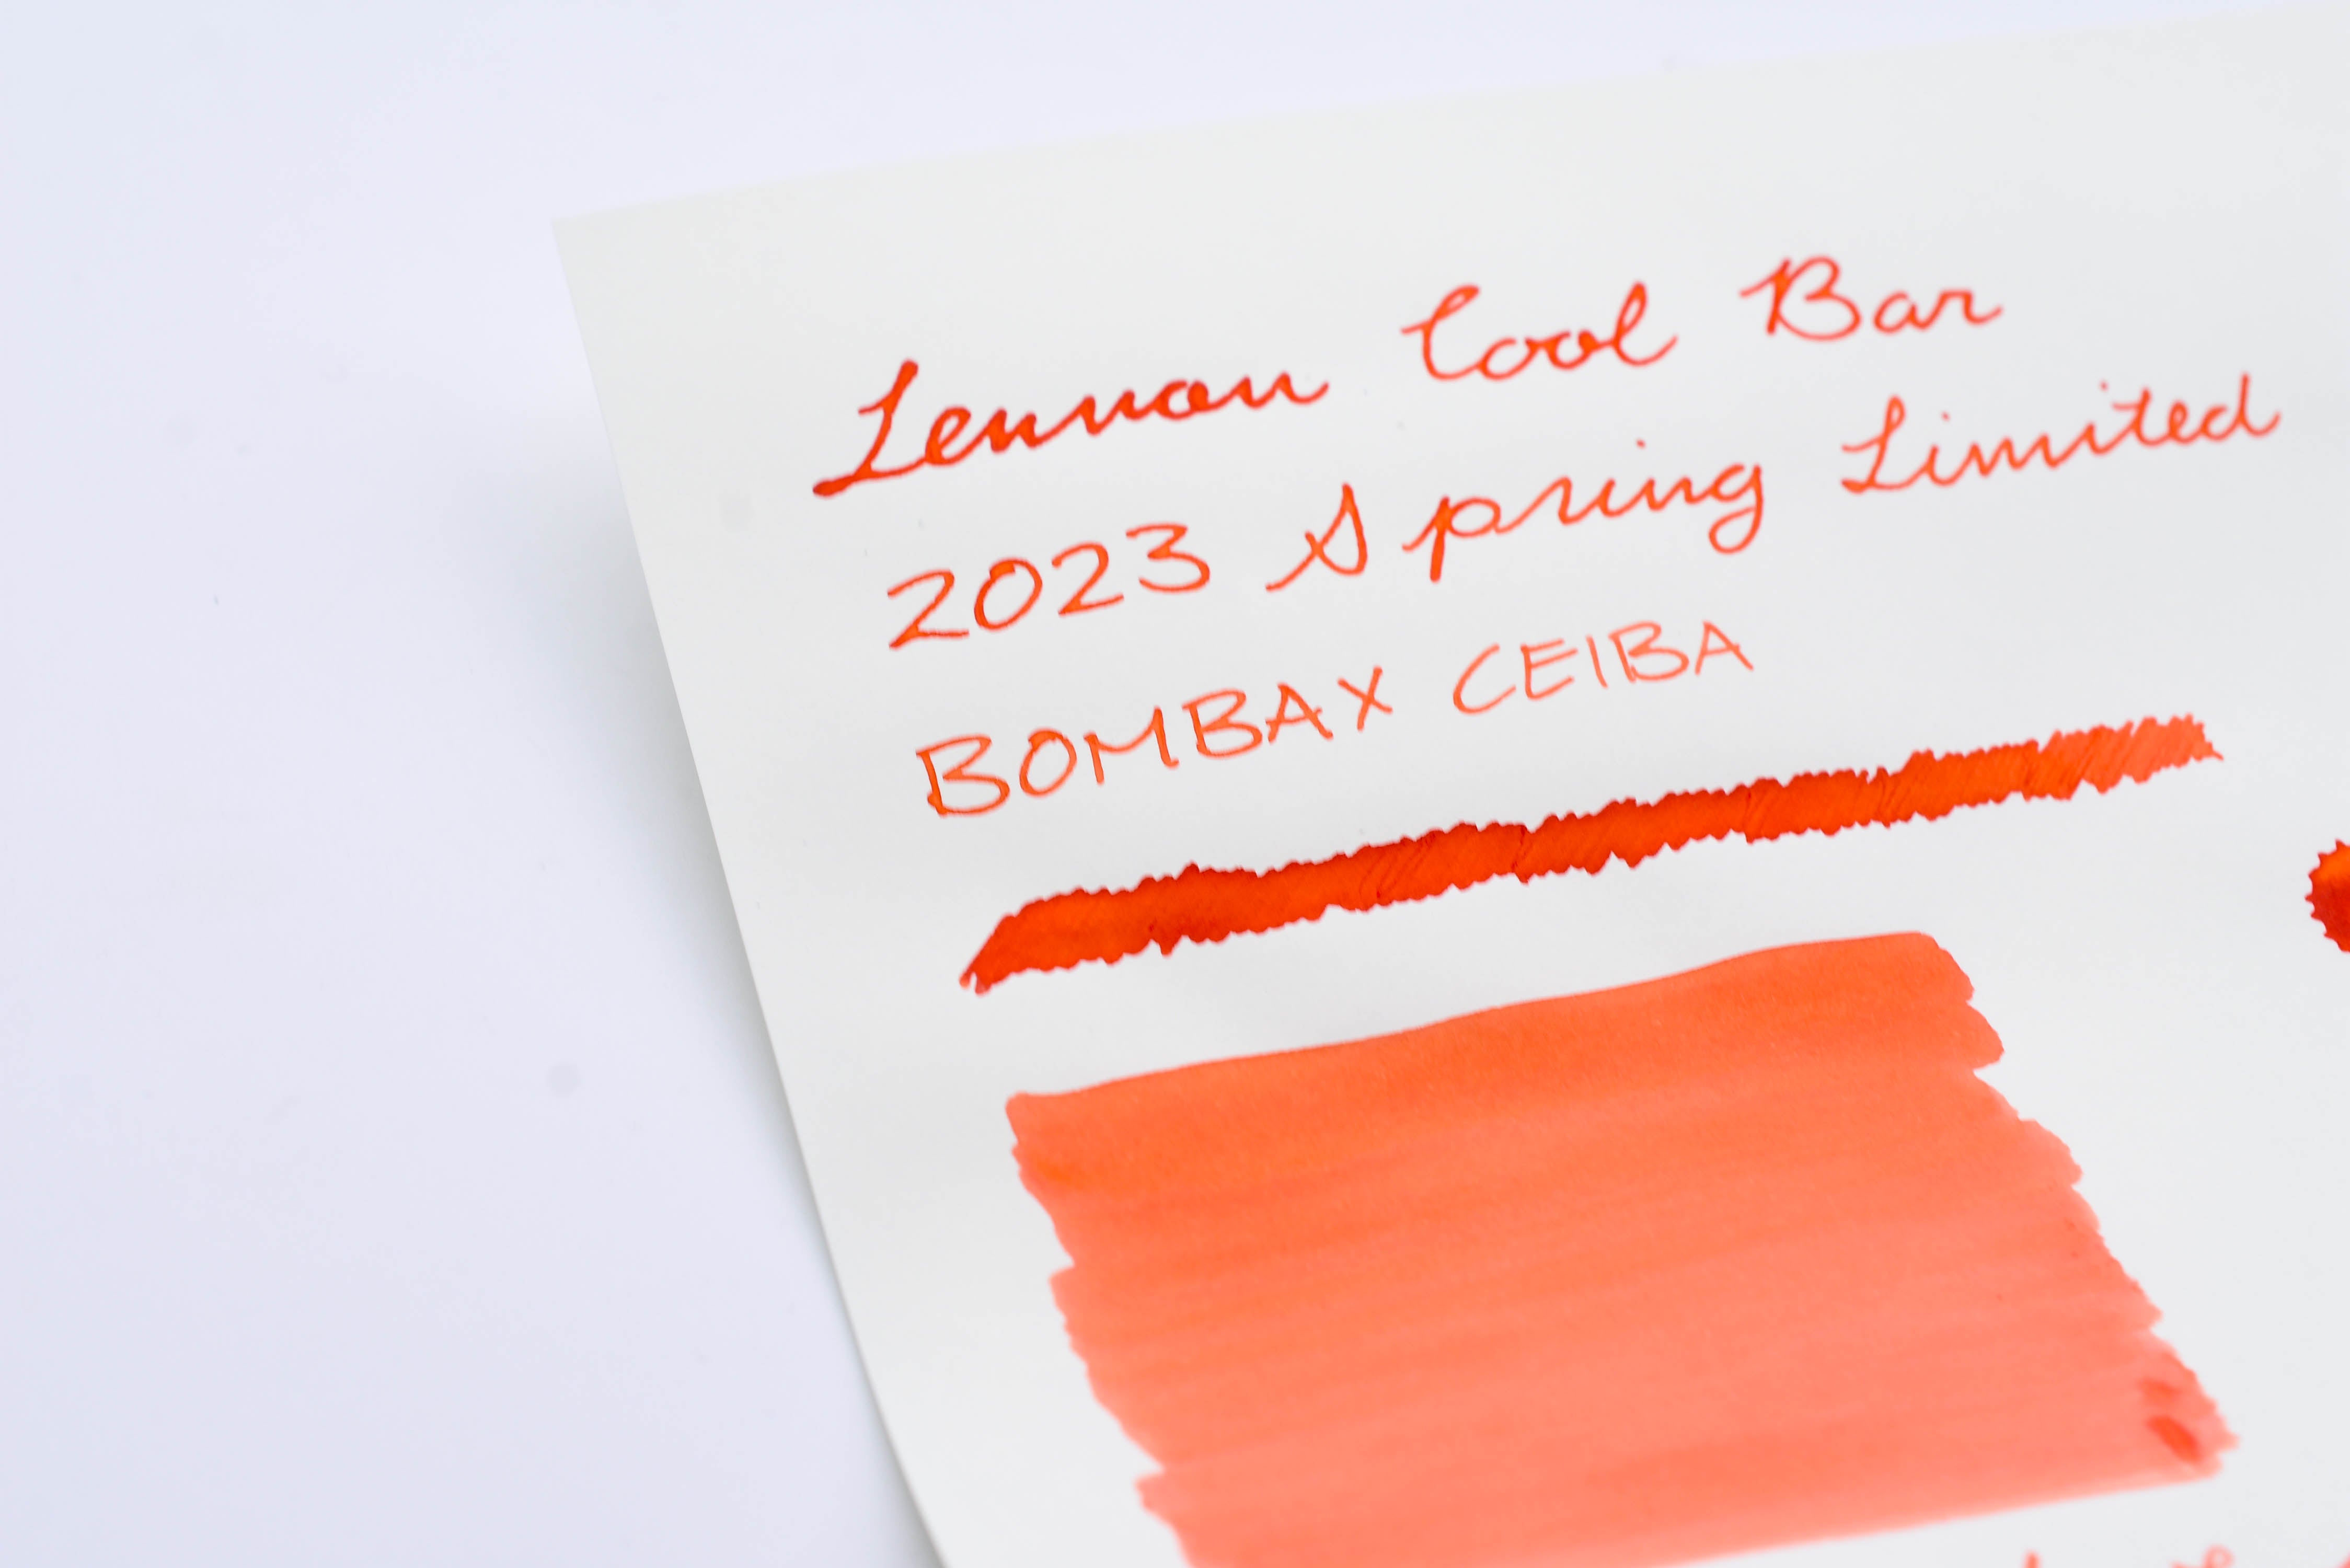 Lennon Cool Bar
2023 Spring Limited
BOMBAX CEIBA